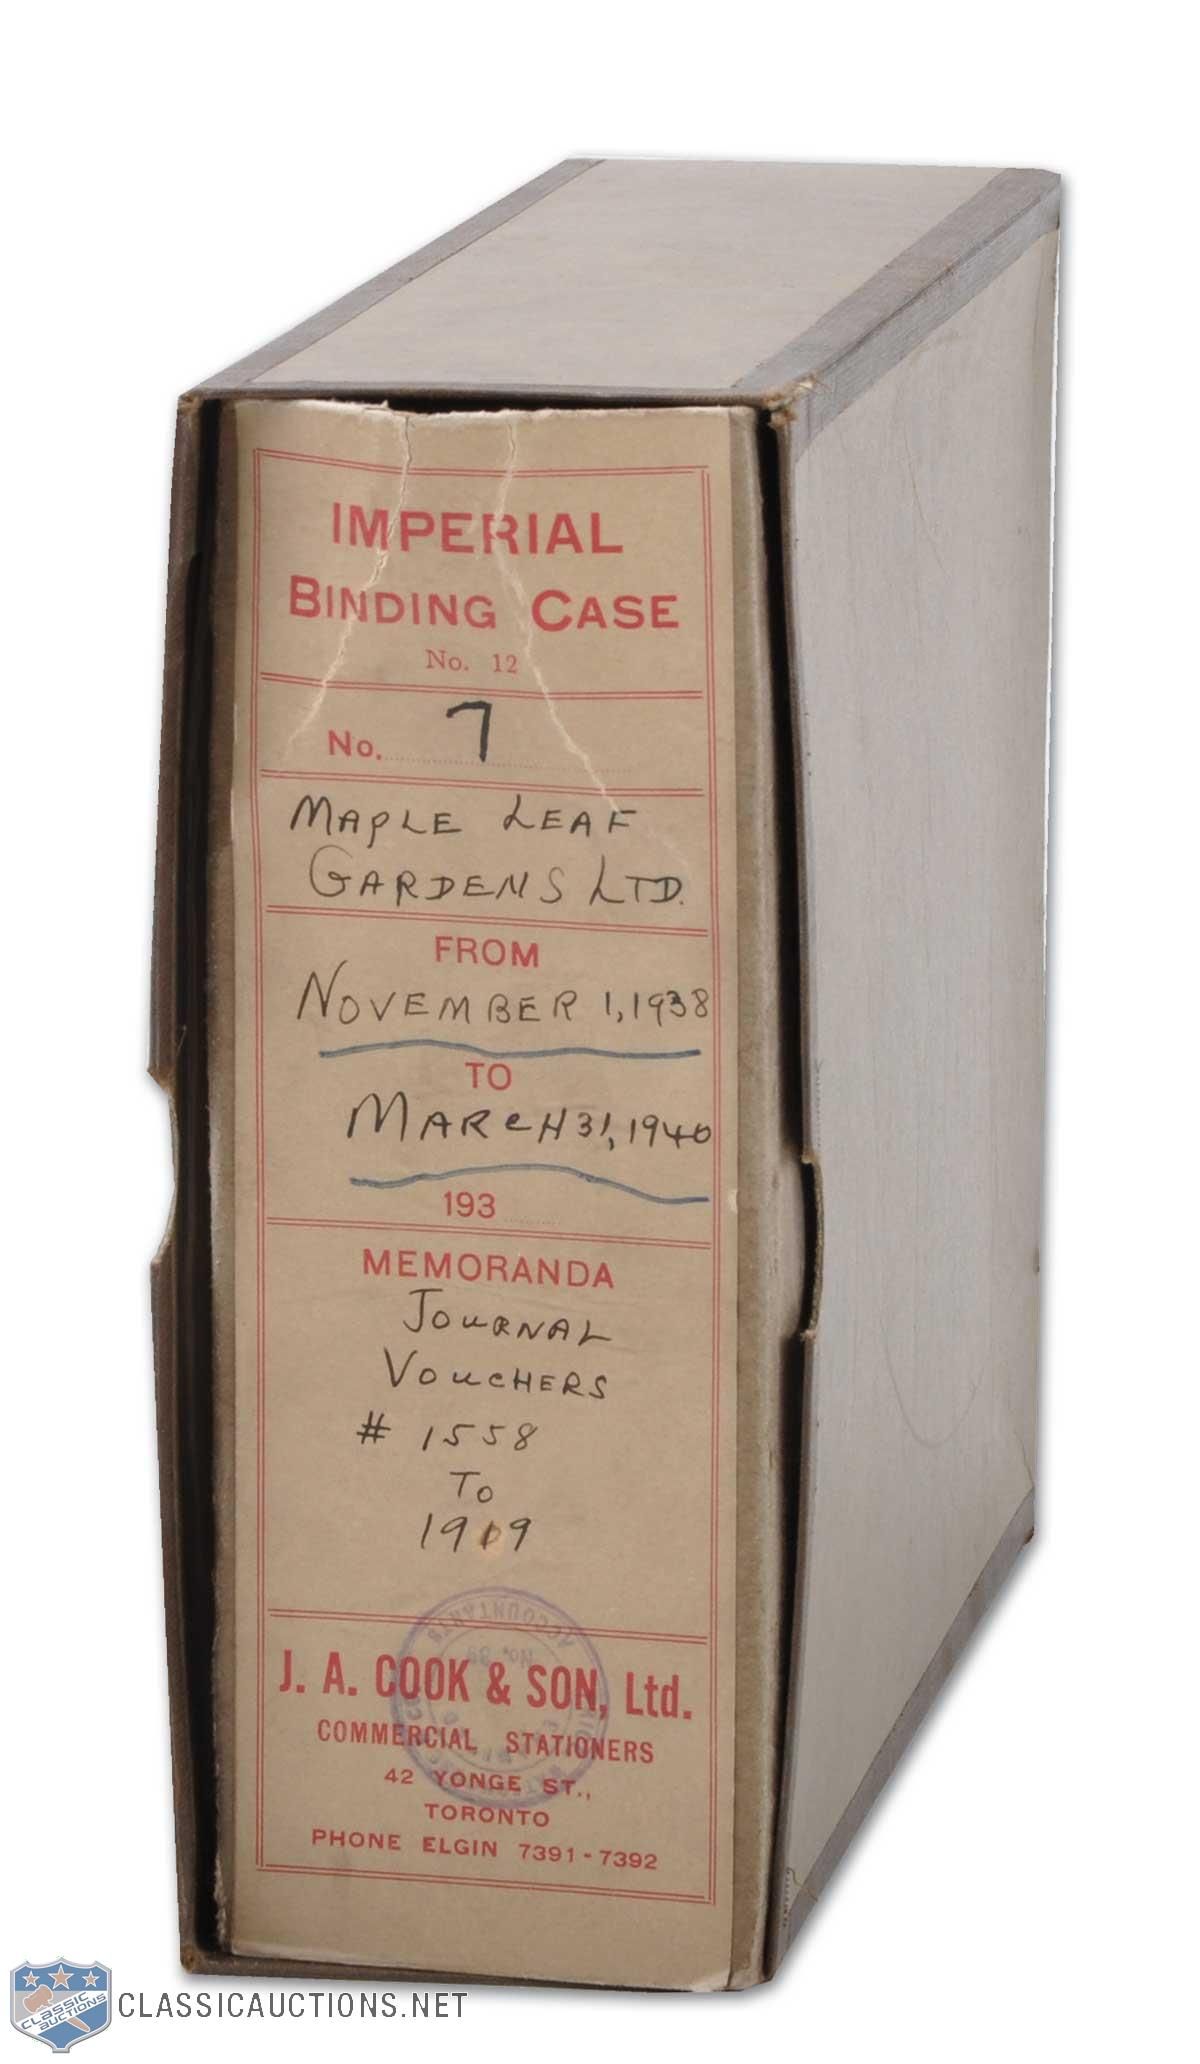 IMPERIAL
BINDING CASE
No. 12
No. 7
MAPLE LEAF
GARDENS LTD.
FROM
NOVEMBER 1, 1938
TO
MARCH 31, 1940
193
MEMORANDA
JOURNAL
VOUCHERS
# 1558
TO
1919
ACCOUNTANTS
J. A. COOK & SON, Ltd.
COMMERCIAL STATIONERS
42 YONGE ST.,
TORONTO
PHONE ELGIN 7391-7392
CLASSIC
AUCTIONS
CLASSICAUCTIONS.NET